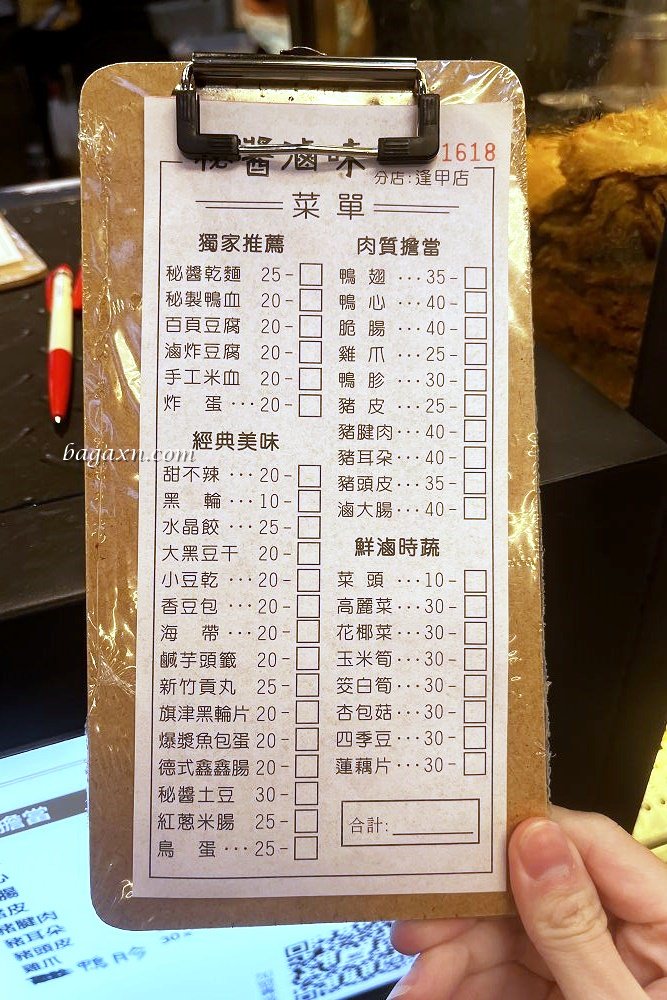 秘醬滷味
1618
分店:逢甲店
菜單
獨家推薦
秘醬乾麵 25-
秘製鴨血 20-
百頁豆腐 20-
滷炸豆腐 20-
手工米血 20-
炸 蛋···20-
經典美味
甜不辣···20-
黑 輪···10-
水晶餃···25-
大黑豆干 20-
小豆乾···20-
香豆包···20-
海 帶···20-
鹹芋頭籤 20-
新竹貢丸 25-
旗津黑輪片 20-
爆漿魚包蛋 20-
德式鑫鑫腸 20-
秘醬土豆 30-
紅蔥米腸 25-
鳥 蛋···25-
肉質擔當
鴨 翅···35-
鴨 心···40-
脆 腸···40-
雞 爪···25-
鴨 胗···30-
豬 皮···25-
豬腱肉···40-
豬耳朵···40-
豬頭皮···35-
滷大腸···40-
鮮滷時蔬
菜 頭···10-
高麗菜···30-
花椰菜···30-
玉米筍···30-
筊白筍···30-
杏包菇···30-
四季豆···30-
蓮藕片···30-
合計:
bagaxn.com
擔當
心
腸
皮
豬腱肉
豬耳朵
豬頭皮
雞爪
鴨胗 30